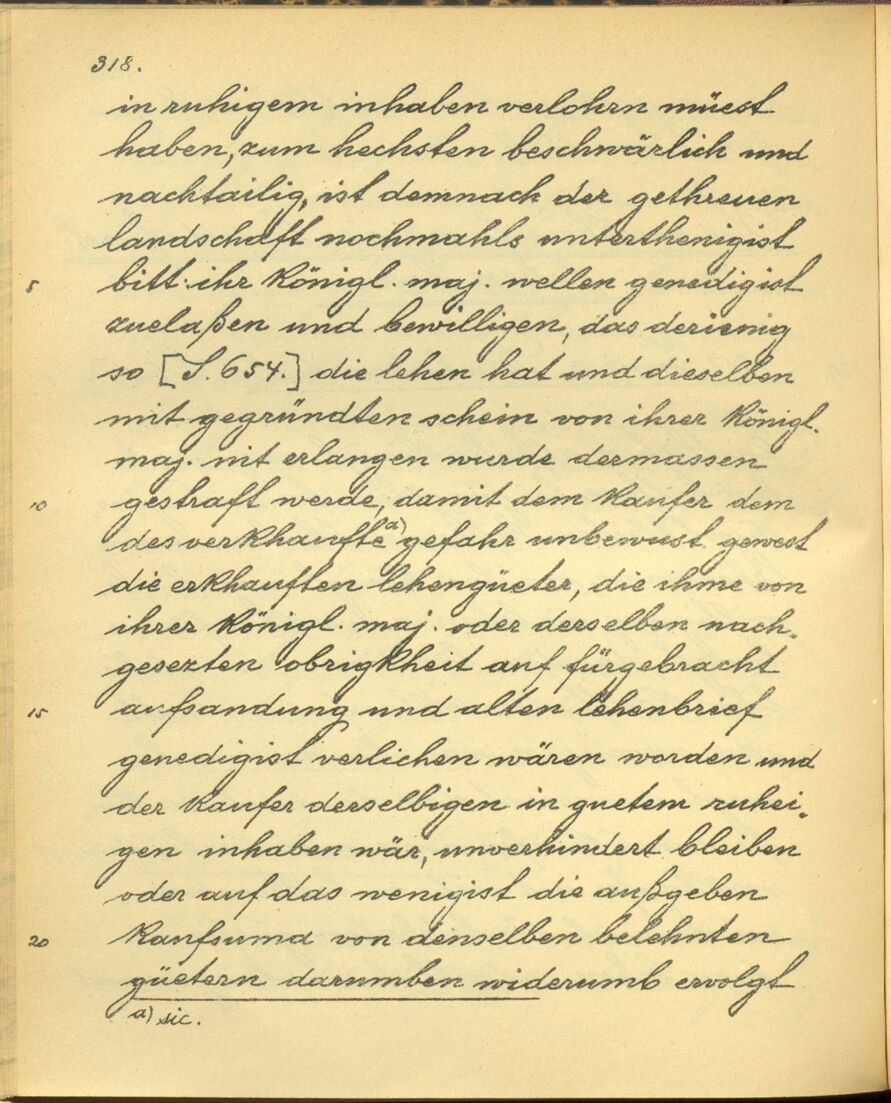 318.
in ruhigem inhaben verlohrn müest
haben, zum hechsten beschwärlich und
nachtailig, ist demnach der gethreuen
landschafft nochmahls unterthenigist
5 bitt: ihr Königl. maj. wellen genedigist
zuelaßen und bewilligen, das derienig
so [S. 654.] die lehen hat und dieselben
mit gegründten schein von ihrer Königl.
maj. nit erlangen wurde dermassen
10 gestraft werde, damit dem Kaufer dem
des verKhaufte a) gefahr unbewust gewest
die erKhauften lehengüeter, die ihme von
ihrer Königl. maj. oder derselben nach-
gesezten obrigKheit auf fürgebracht
15 aufsandung und alten lehenbrief
genedigist verlichen wären worden und
der Kaufer derselbigen in guetem ruhei-
gen inhaben wär, unverhindert bleiben
oder auf das wenigist die außgeben
20 Kaufsuma von denselben belehnten
güetern darumben widerumb ervolgt
a) sic.